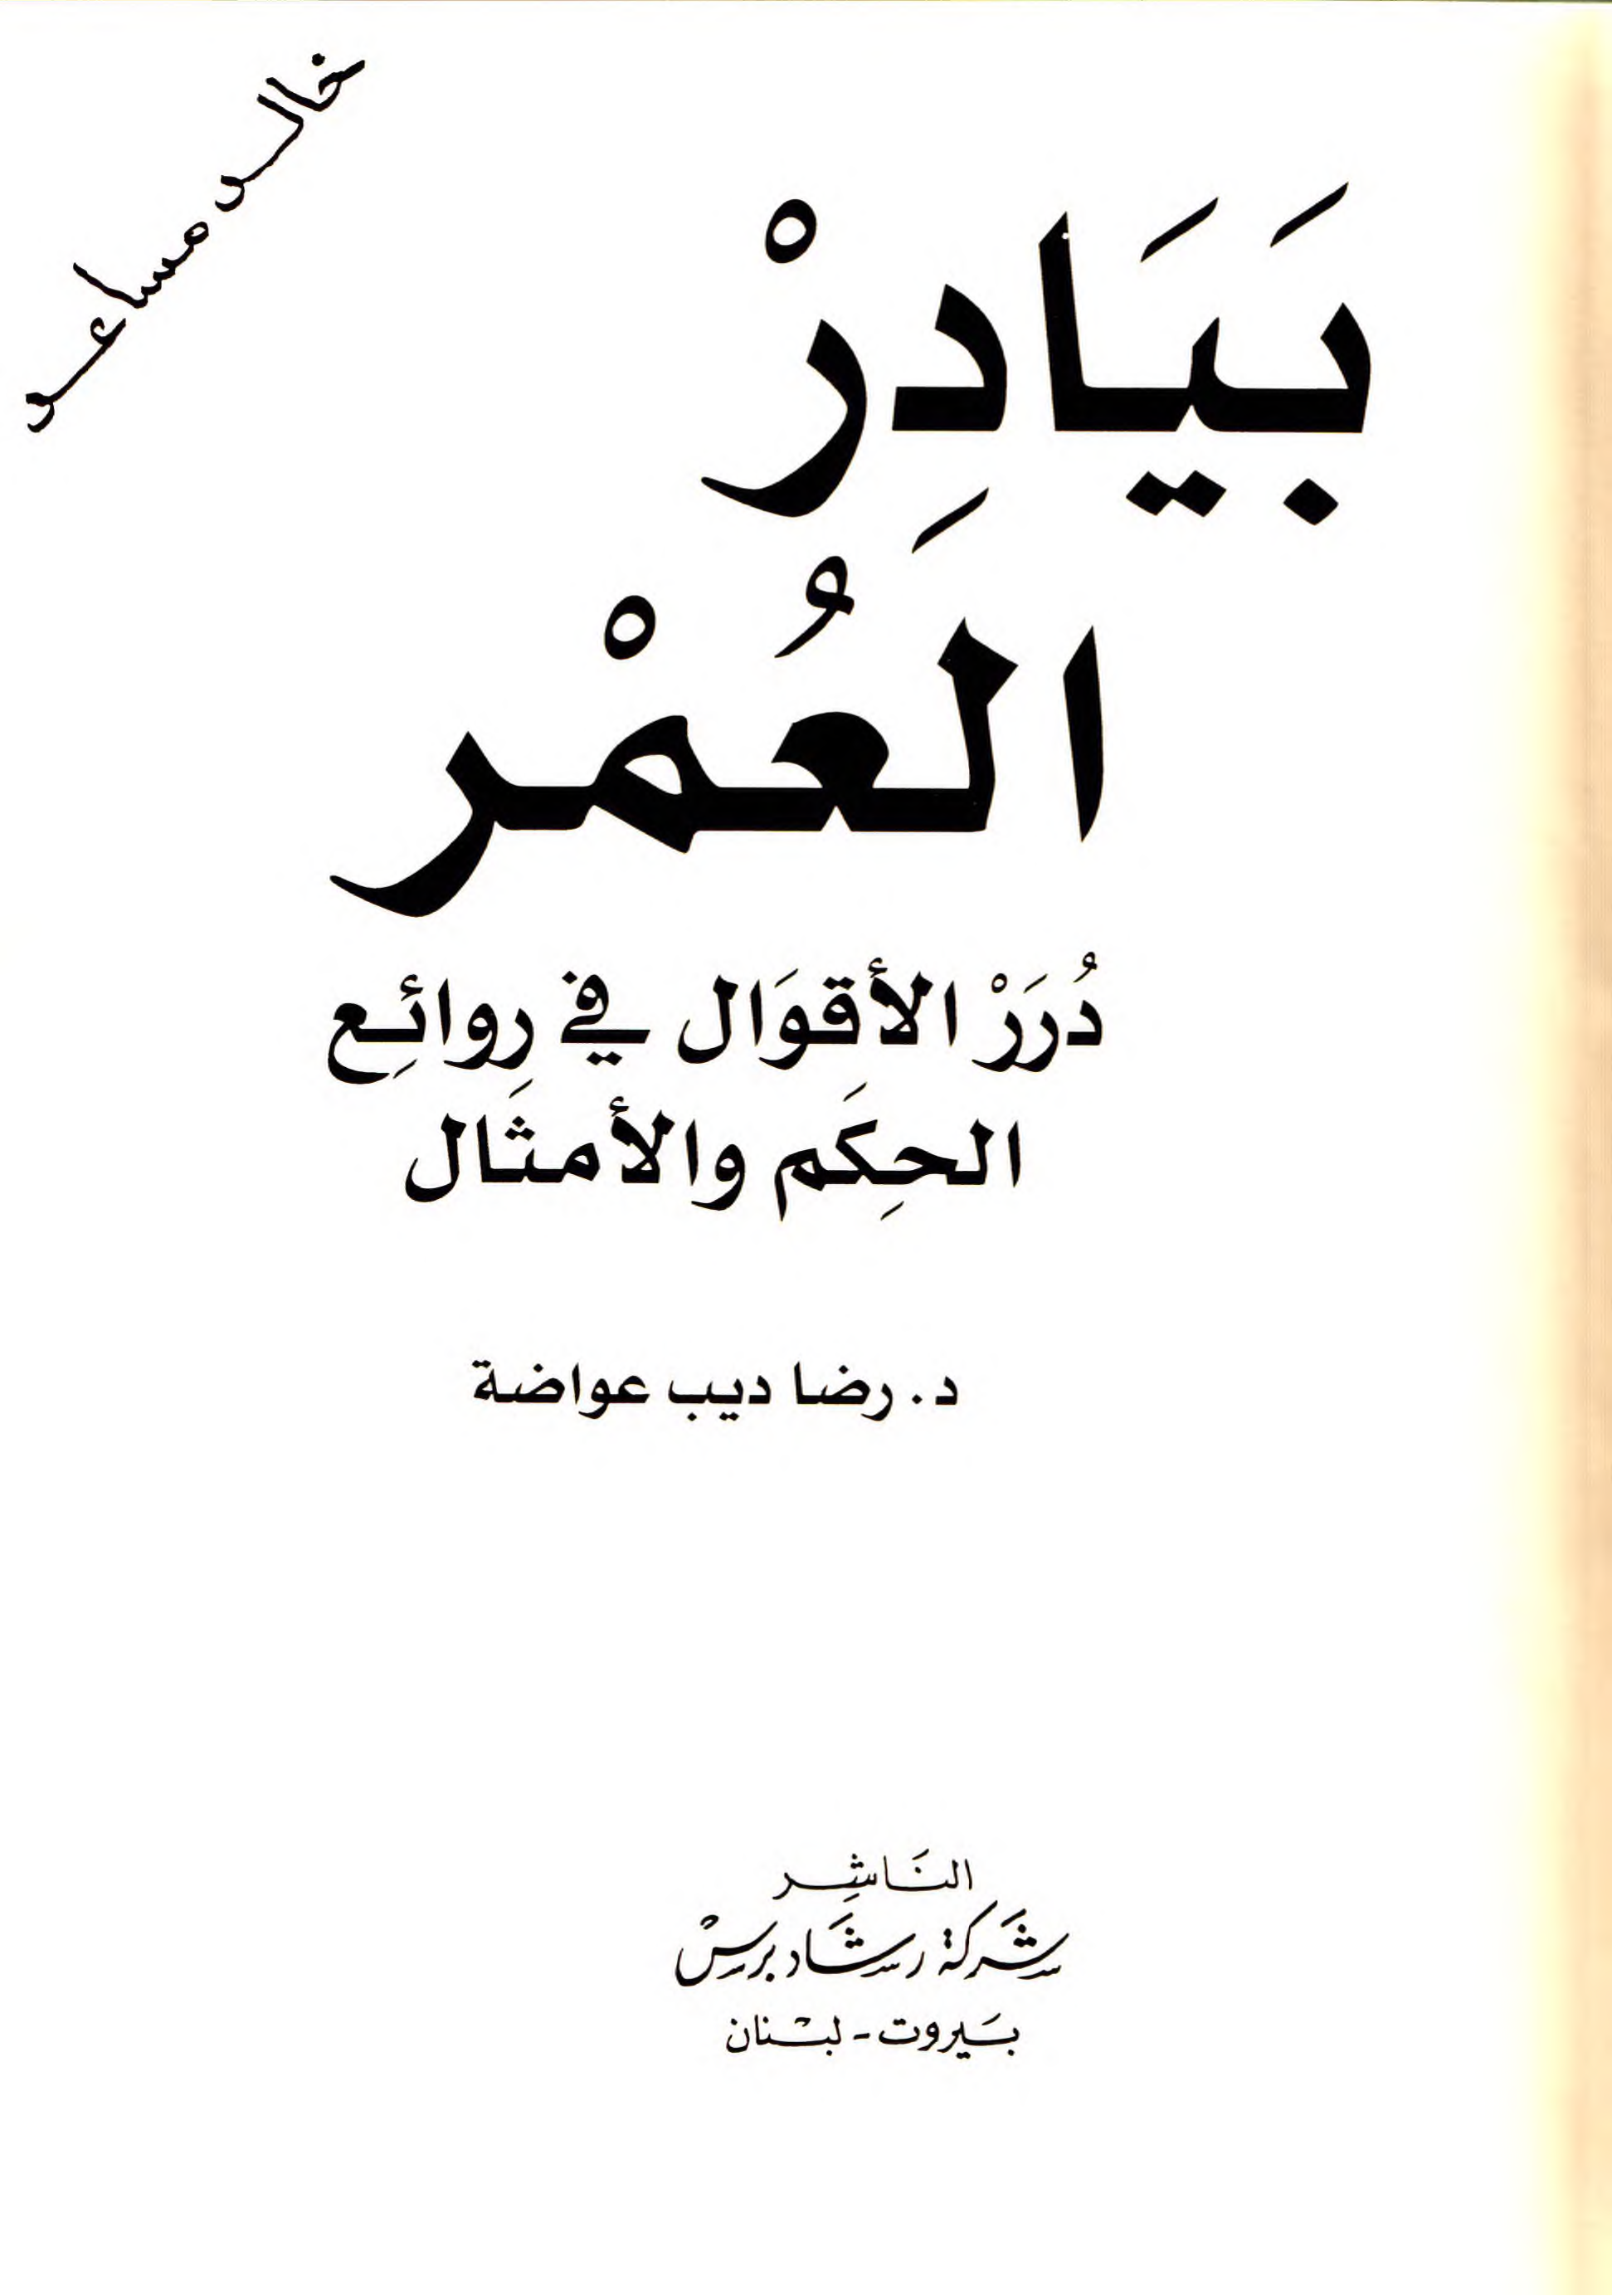 خالد مساعد
بَيَادِرْ
العُمْر
دُرَرْ الأقوَال في روائِع
الحِكَم والأمثَال
د. رضا ديب عواضة
النَاشِر
شَركة رشَاد برسْ
بَيروت - لبْنان